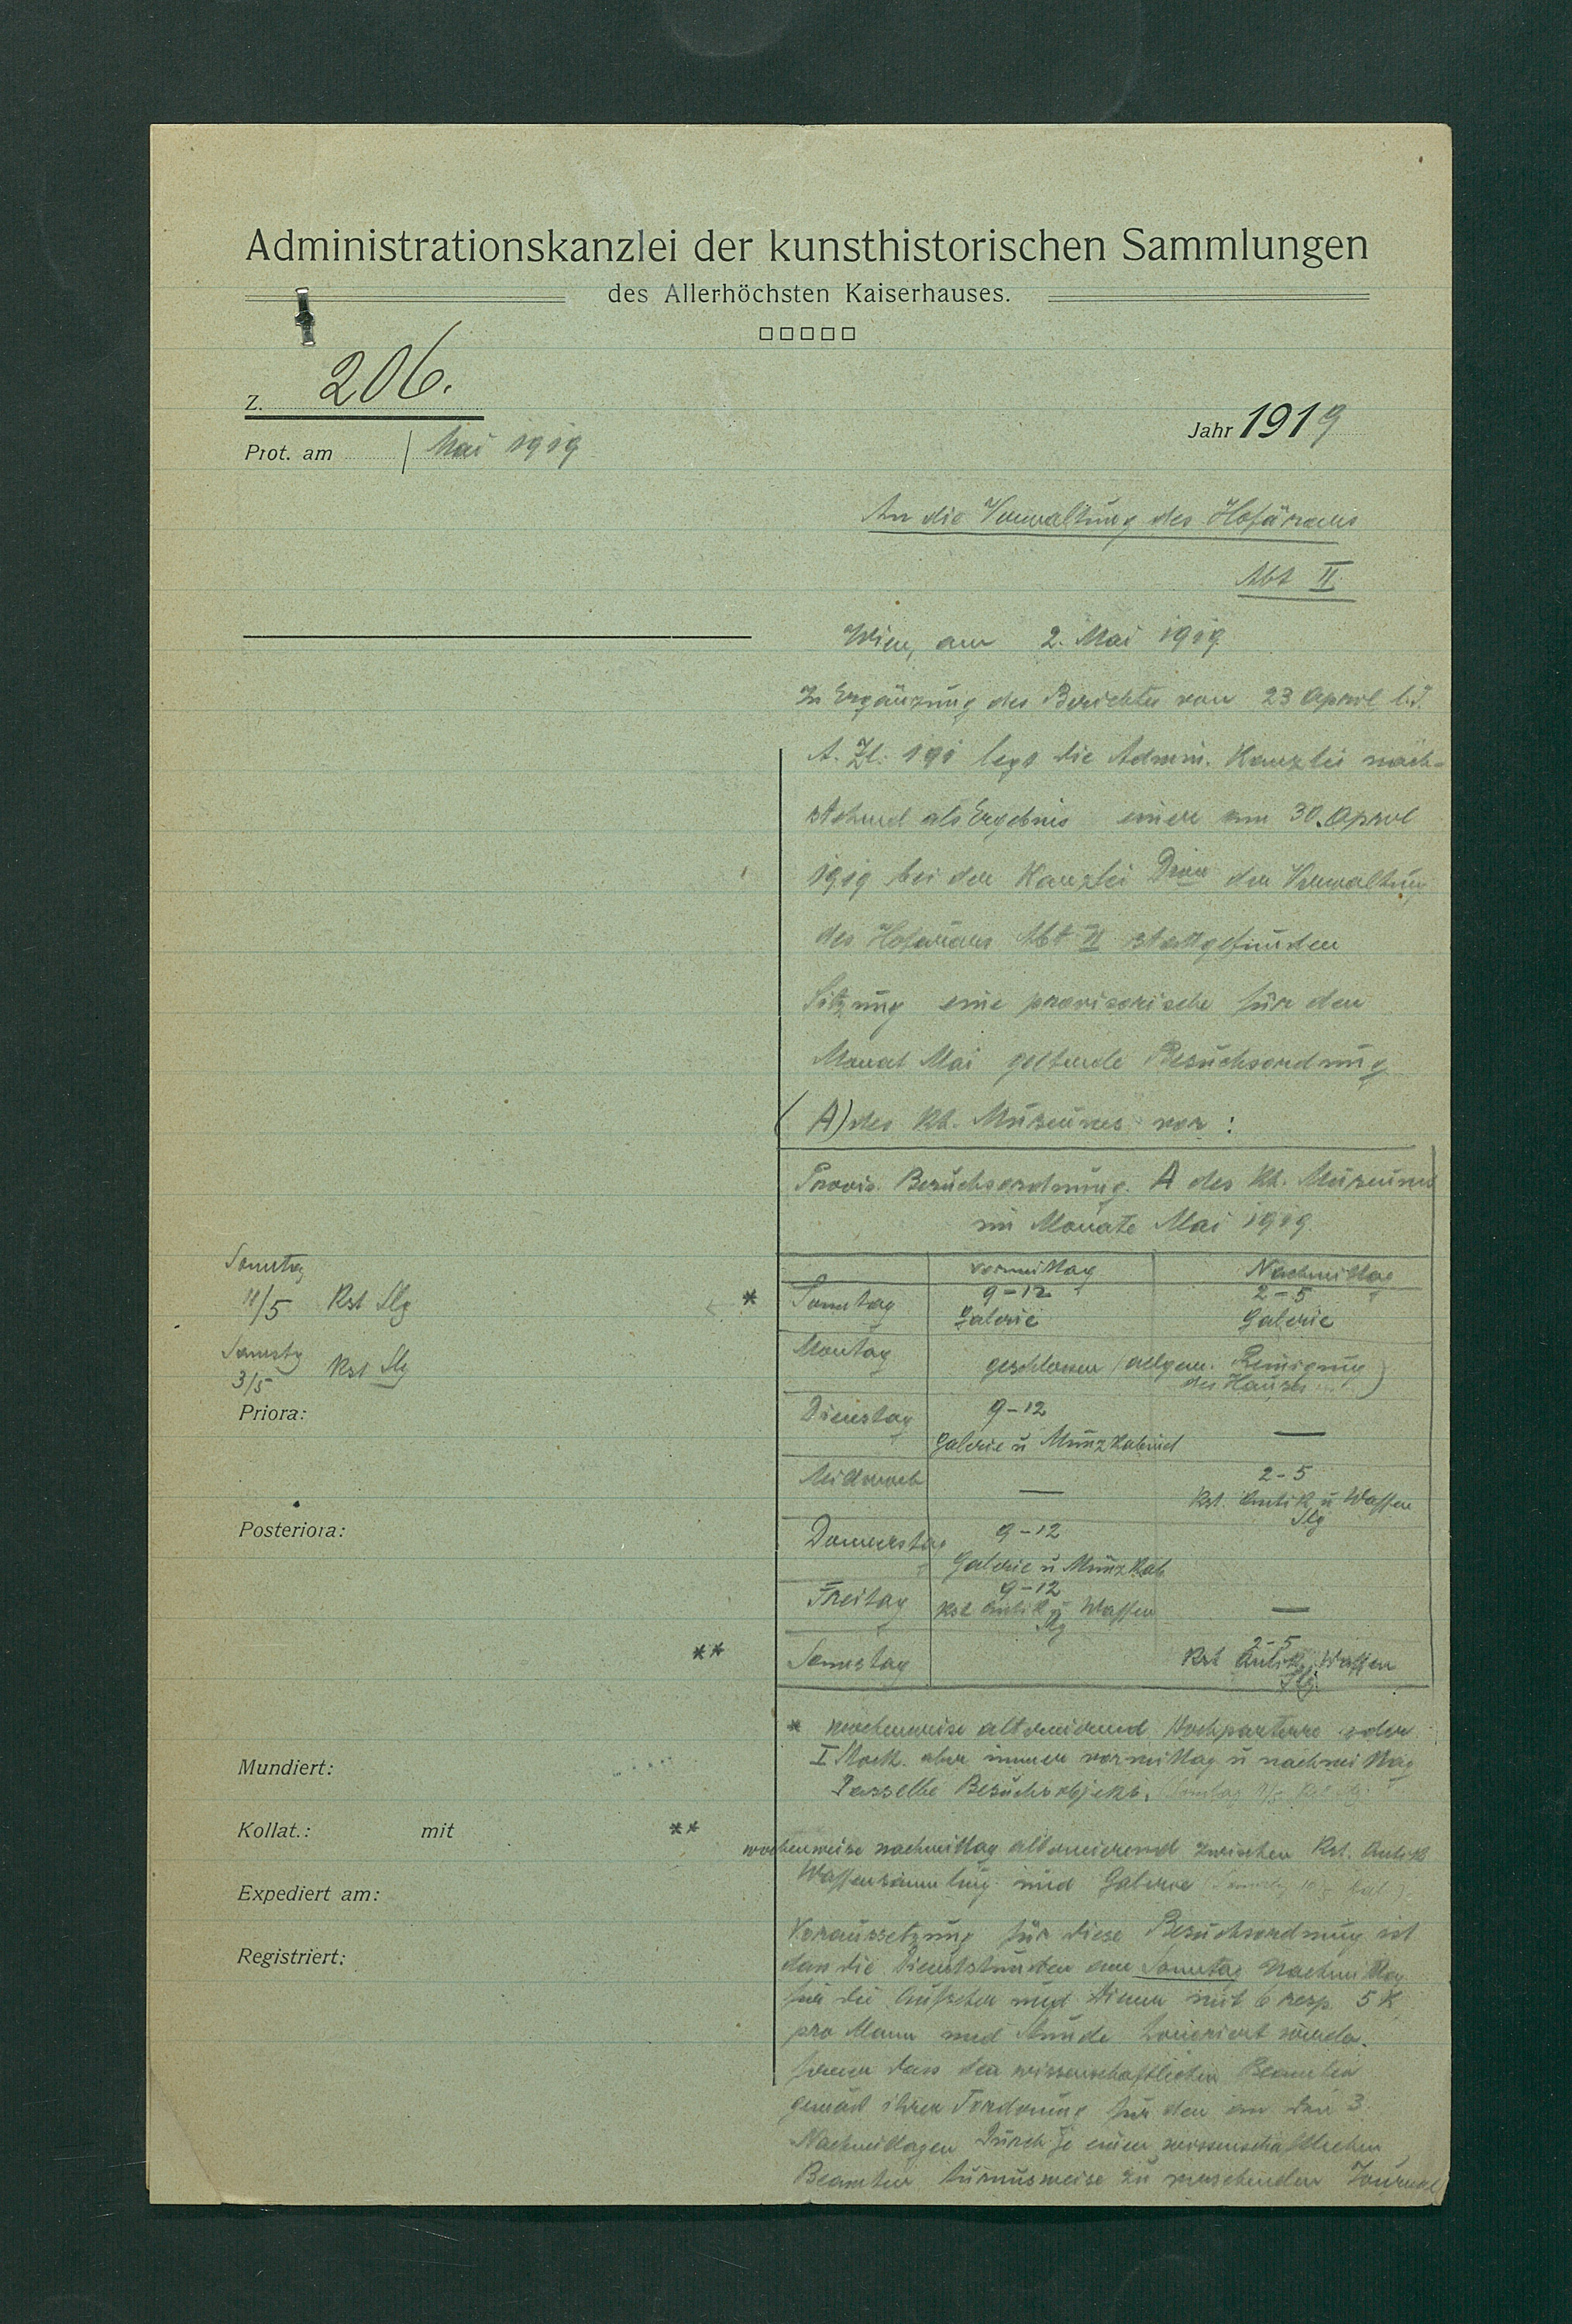 Administrationskanzlei der kunsthistorischen Sammlungen
des Allerhöchsten Kaiserhauses.
Z. 206.
Jahr 1919
Prot. am / Mai 1919
An die Verwaltung des Hofärars
Abt II
Wien, am 2. Mai 1919
In Ergänzung des Berichtes vom 23 April l. J.
A. Zl. 191 legt die Admin. Kanzlei nach-
stehend als Ergebnis einer am 30. April
1919 bei der Kanzlei Dion der Verwaltung
des Hofärars Abt II stattgefunden
Sitzung eine provisorische für den
Monat Mai geltende Besuchsordnung
(A) des Kh. Museums vor:
Provis. Besuchsordnung. A des Kh. Museums
im Monate Mai 1919.
vormittag Nachmittag
* Sonntag 9-12 Galerie 2-5 Galerie
Montag geschlossen (allgem. Reinigung
des Hauses)
Dienstag 9-12 Galerie u Münzkabinet —
Mittwoch — 2-5 Kst. Antik u Waffen Slg
Donnerstag 9-12 Galerie u Münzkab
Freitag 9-12 Kst Antik u Waffen Slg —
** Samstag 2-5 Kst Antik, Waffen Slg
Sonntag
11/5 Kst Slg
Samstg
3/5 Kst Slg
Priora:
Posteriora:
Mundiert:
Kollat.: mit
Expediert am:
Registriert:
* wochenweise alternierend Hochparterre oder
I Stock. aber immer vormittag u nachmittag
dasselbe Besuchsobjekt. (Sonntag 11/5 Kst Slg
** wochenweise nachmittag alternierend zwischen Kst. Antik
Waffensammlung und Galerie
Voraussetzung für diese Besuchsordnung ist
dass die Dienststunden am Sonntag Nachmittag
für die Aufseher und Diener mit 6 resp. 5 K
pro Mann und Stunde honoriert würde.
ferner dass den wissenschaftlichen Beamten
gemäß ihrer Forderung für den an den 3
Nachmittagen durch je einen wissenschaftlichen
Beamten turnusweise zu versehenden Journal